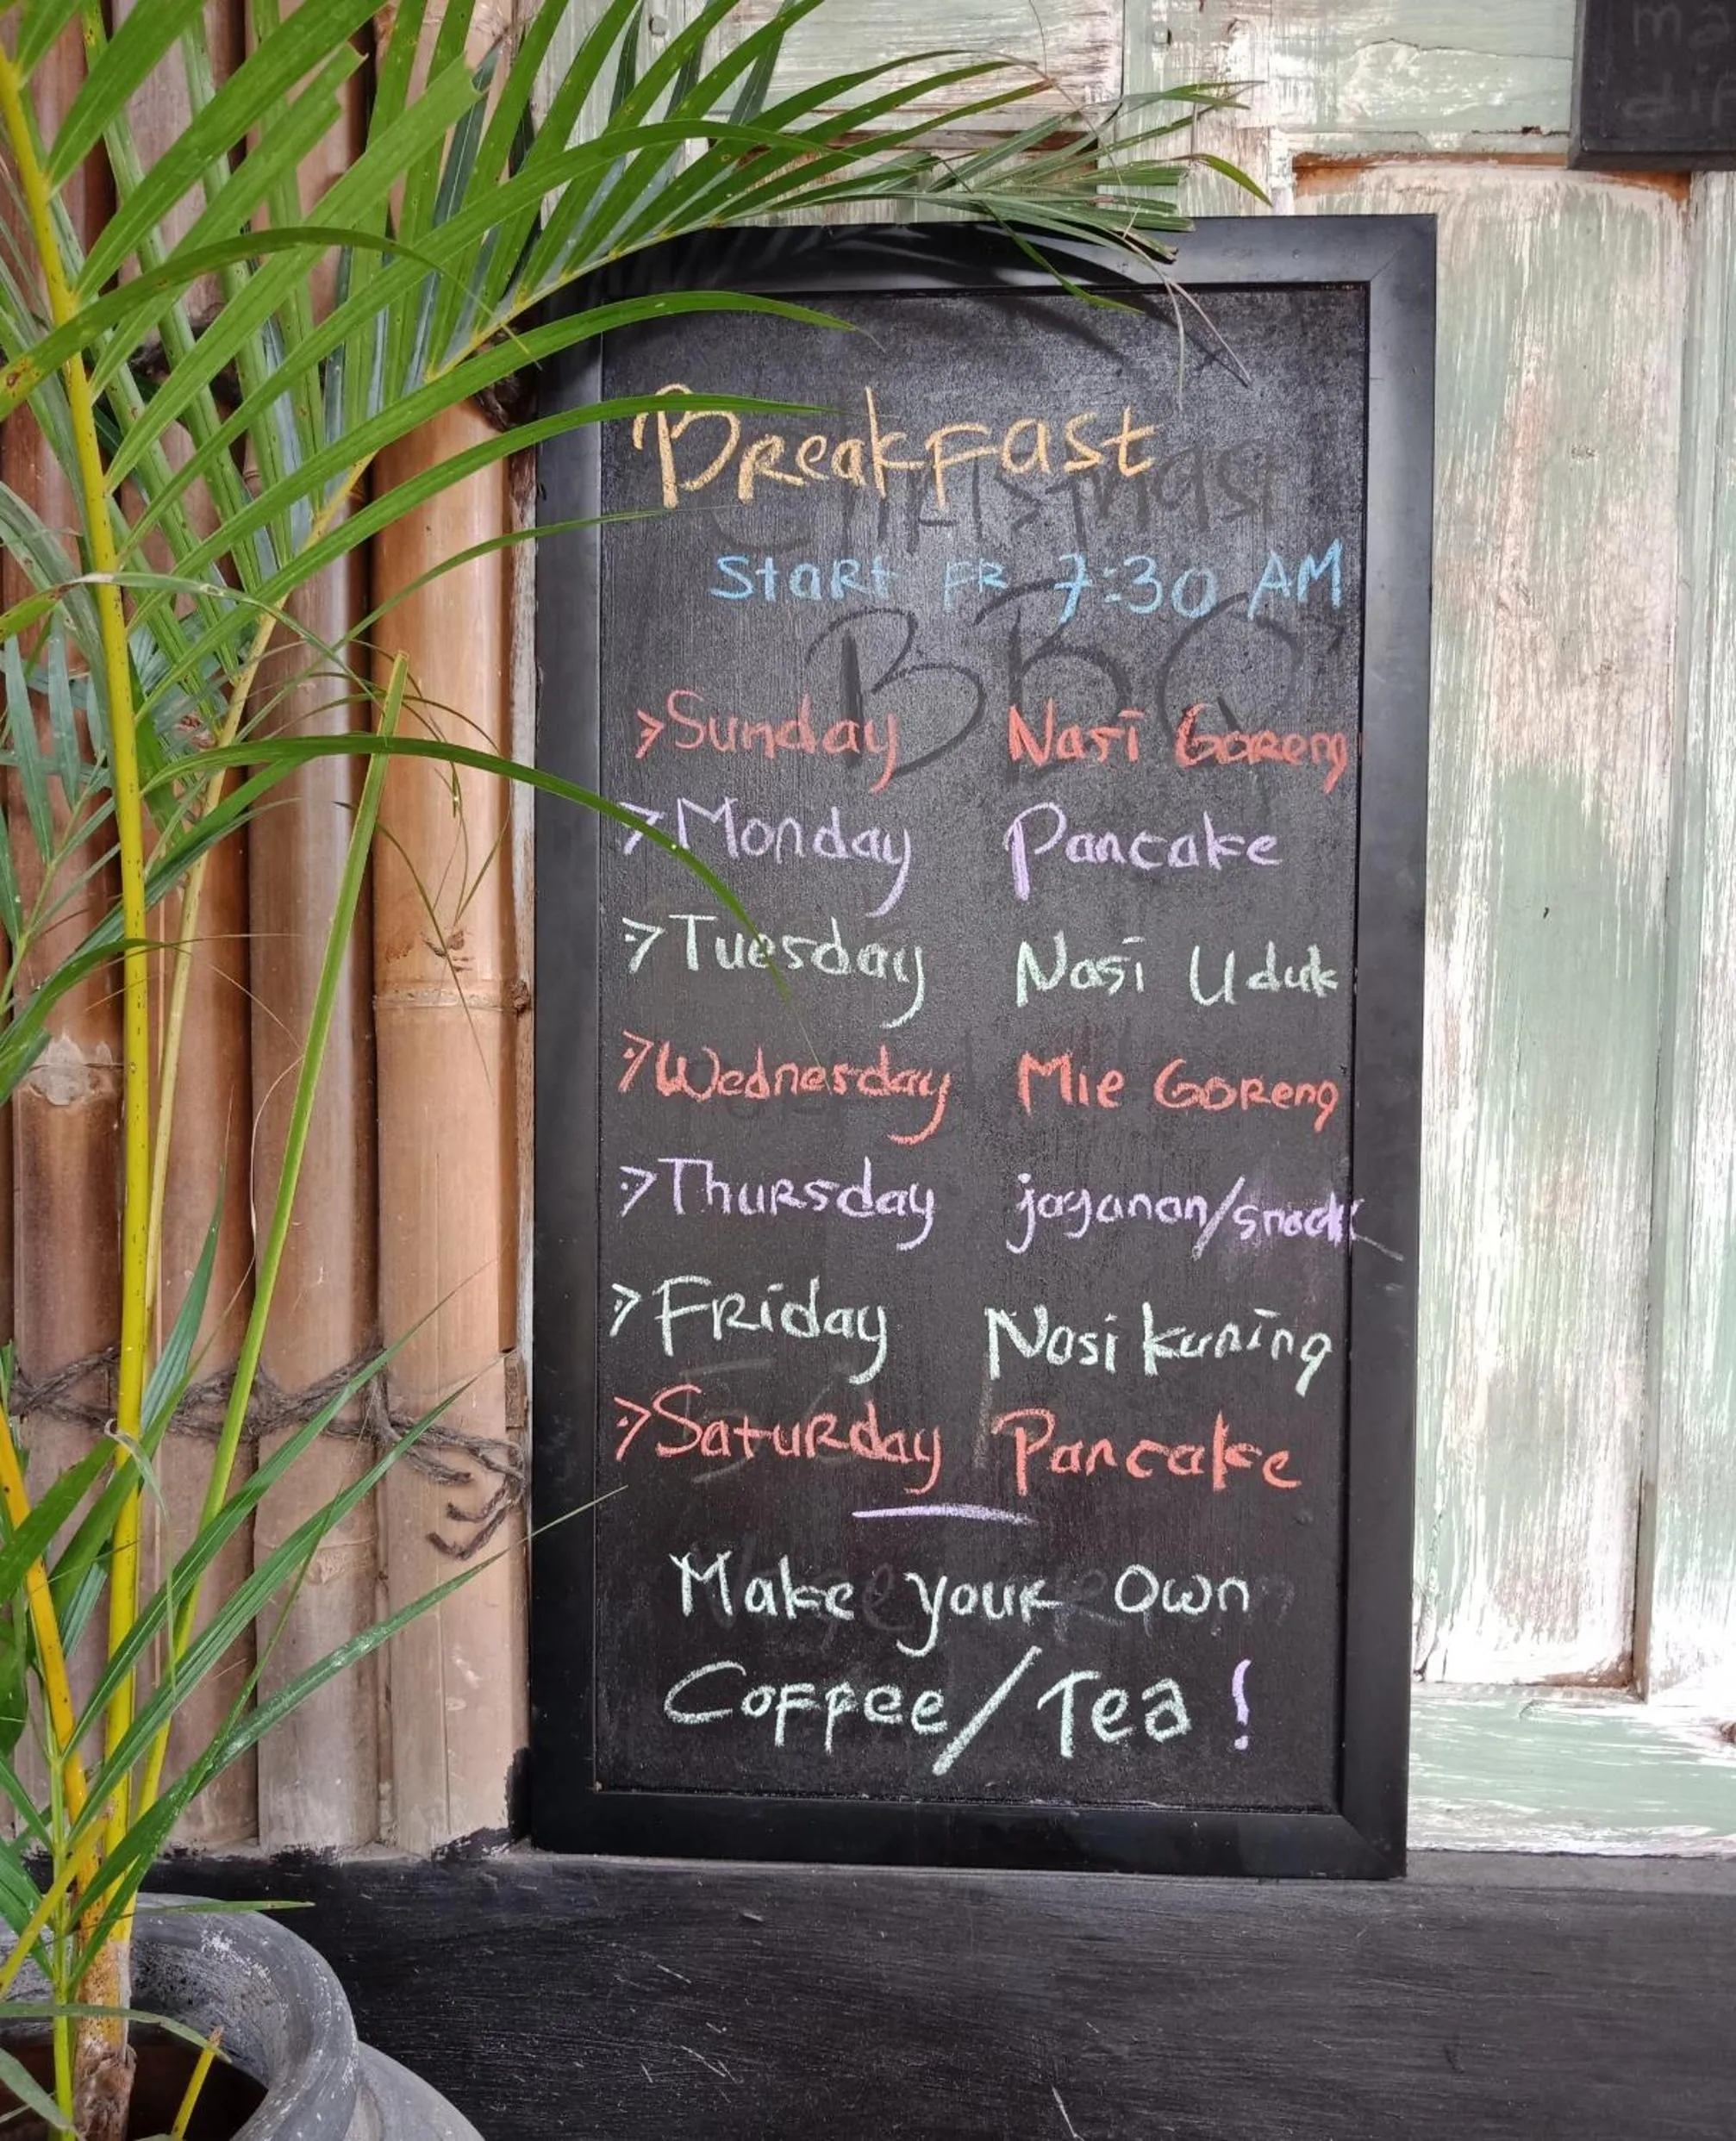 Breakfast
Start FR 7:30 AM
Sunday Nasi Goreng
Monday Pancake
Tuesday Nasi Uduk
Wednesday Mie Goreng
Thursday jaganan/snack
Friday Nasi kuning
Saturday Pancake
Make your own
Coffee/Tea!
Christmast
BBQ